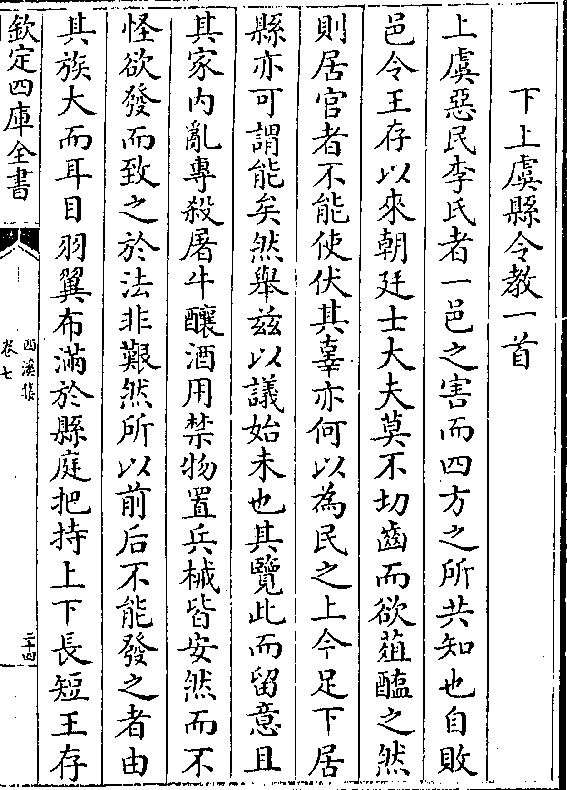 下上虞縣令教一首
上虞惡民李氏者一邑之害而四方之所共知也自敗
邑令王存以來朝廷士大夫莫不切齒而欲葅醢之然
則居官者不能使伏其辜亦何以為民之上今足下居
縣亦可謂能矣然舉兹以議始未也其覽此而留意且
其家内亂專殺屠牛釀酒用禁物置兵械皆安然而不
怪欲發而致之於法非艱然所以前后不能發之者由
其族大而耳目羽翼布滿於縣庭把持上下長短王存
欽定四庫全書
西溪集
卷七
二十四